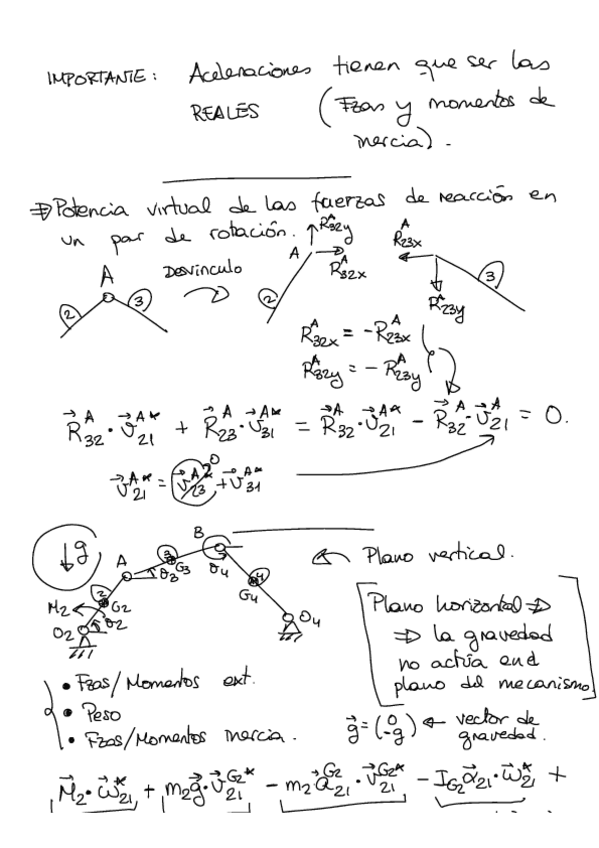 IMPORTANTE: Aceleraciones tienen que ser las
REALES (Fzas y momentos de
inercia).
⇒ Potencia virtual de las fuerzas de reacción en
un par de rotación.
A
2
3
Desvinculo
A
R^A_32y
R^A_32x
2
A
R^A_23x
R^A_23y
3
R^A_32x = -R^A_23x
R^A_32y = -R^A_23y
R⃗^A_32 · v⃗^A*_21 + R⃗^A_23 · v⃗^A*_31 = R⃗^A_32 · v⃗^A*_21 - R⃗^A_32 · v⃗^A*_21 = 0.
v⃗^A*_21 = v⃗^A*_23 + v⃗^A*_31
0
↓g
A
B
3
G3
θ3
θ4
4
G4
2
G2
M2
θ2
O2
O4
← Plano vertical.
Plano horizontal ⇒
⇒ la gravedad
no actúa en el
plano del mecanismo
• Fzas/Momentos ext.
• Peso
• Fzas/Momentos inercia.
g⃗ = (0 -g) ← vector de
gravedad.
M⃗2 · ω⃗*_21 + m2 g⃗ · v⃗^G2*_21 - m2 a⃗^G2_21 · v⃗^G2*_21 - I_G2 α⃗_21 · ω⃗*_21 +